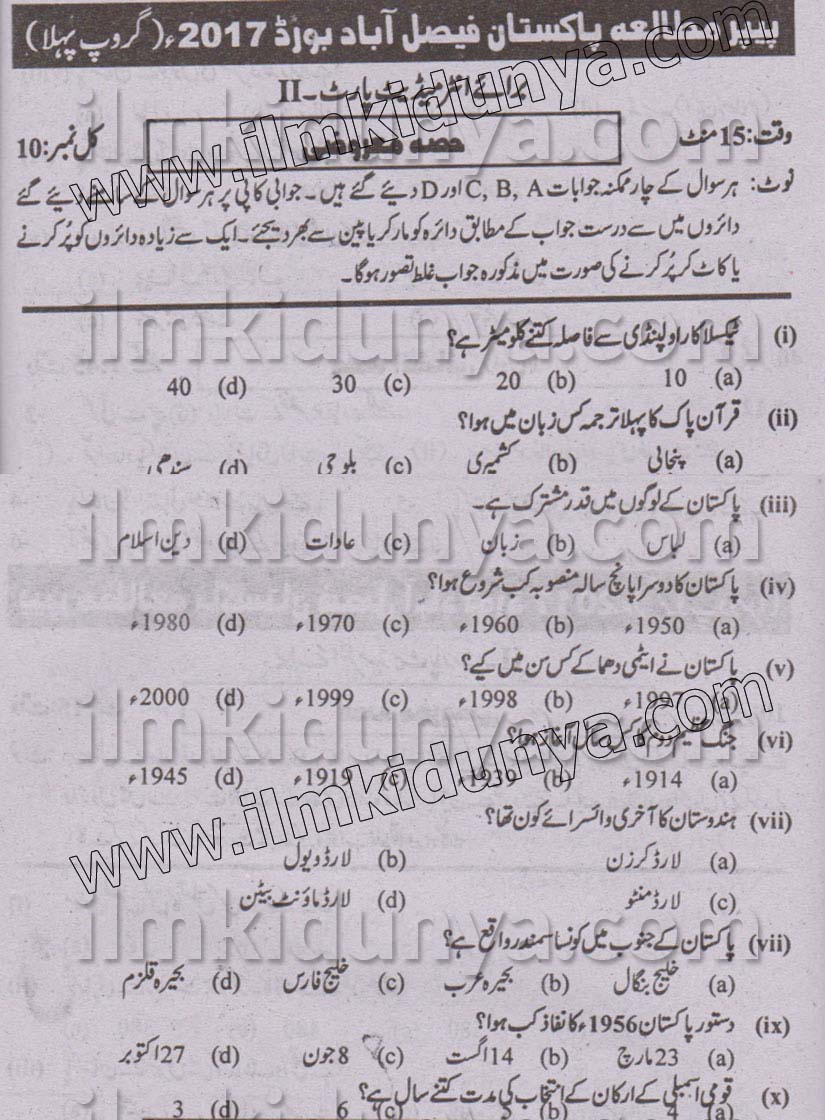 پیپر مطالعہ پاکستان فیصل آباد بورڈ 2017ء (گروپ پہلا)
برائے انٹرمیڈیٹ پارٹ۔II
وقت:15منٹ
حصہ معروضی
کل نمبر:10
نوٹ: ہر سوال کے چار ممکنہ جوابات C, B, A اور D دیئے گئے ہیں۔ جوابی کاپی پر ہر سوال کے سامنے دیئے گئے
دائروں میں سے درست جواب کے مطابق دائرہ کو مارکر یا پین سے بھر دیجئے۔ ایک سے زیادہ دائروں کو پُر کرنے
یا کاٹ کر پُر کرنے کی صورت میں مذکورہ جواب غلط تصور ہوگا۔
(i) ٹیکسلا کا راولپنڈی سے فاصلہ کتنے کلومیٹر ہے؟
(a) 10 (b) 20 (c) 30 (d) 40
(ii) قرآن پاک کا پہلا ترجمہ کس زبان میں ہوا؟
(a) پنجابی (b) کشمیری (c) بلوچی (d) سندھی
(iii) پاکستان کے لوگوں میں قدر مشترک ہے۔
(a) لباس (b) زبان (c) عادات (d) دین اسلام
(iv) پاکستان کا دوسرا پانچ سالہ منصوبہ کب شروع ہوا؟
(a) 1950ء (b) 1960ء (c) 1970ء (d) 1980ء
(v) پاکستان نے ایٹمی دھماکے کس سن میں کیے؟
(a) 1997ء (b) 1998ء (c) 1999ء (d) 2000ء
(vi) جنگ عظیم دوم کا کس سال آغاز ہوا؟
(a) 1914ء (b) 1939ء (c) 1919ء (d) 1945ء
(vii) ہندوستان کا آخری وائسرائے کون تھا؟
(a) لارڈ کرزن (b) لارڈ ویول
(c) لارڈ منٹو (d) لارڈ ماؤنٹ بیٹن
(vii) پاکستان کے جنوب میں کونسا سمندر واقع ہے؟
(a) خلیج بنگال (b) بحیرہ عرب (c) خلیج فارس (d) بحیرہ قلزم
(ix) دستور پاکستان 1956ء کا نفاذ کب ہوا؟
(a) 23مارچ (b) 14اگست (c) 8جون (d) 27اکتوبر
(x) قومی اسمبلی کے ارکان کے انتخاب کی مدت کتنے سال ہے؟
(a) 4 (b) 5 (c) 6 (d) 3
www.ilmkidunya.com
www.ilmkidunya.com
ilmkidunya.com
ilmkidunya.com
ilmkidunya.com
ilmkidunya.com
ilmkidunya.com
ilmkidunya.com